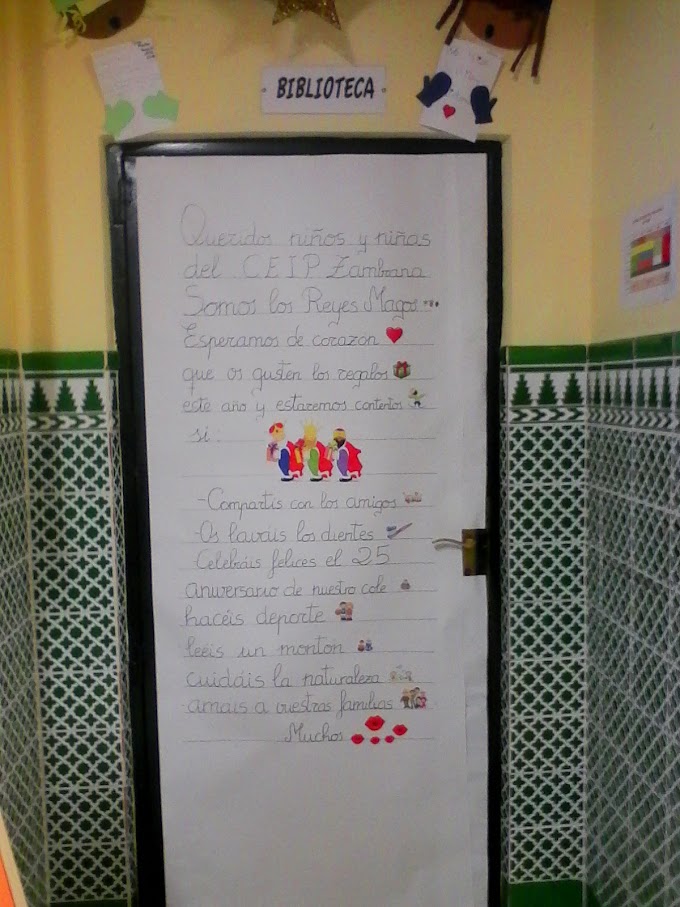 BIBLIOTECA
Queridos niños y niñas
del C.E.I.P. Zambrana
Somos los Reyes Magos
Esperamos de corazón
que os gusten los regalos
este año y estaremos contentos
si
-Compartís con los amigos
-Os laváis los dientes
-Celebráis felices el 25
aniversario de nuestro cole
hacéis deporte
leéis un montón
cuidáis la naturaleza
amáis a vuestras familias
Muchos